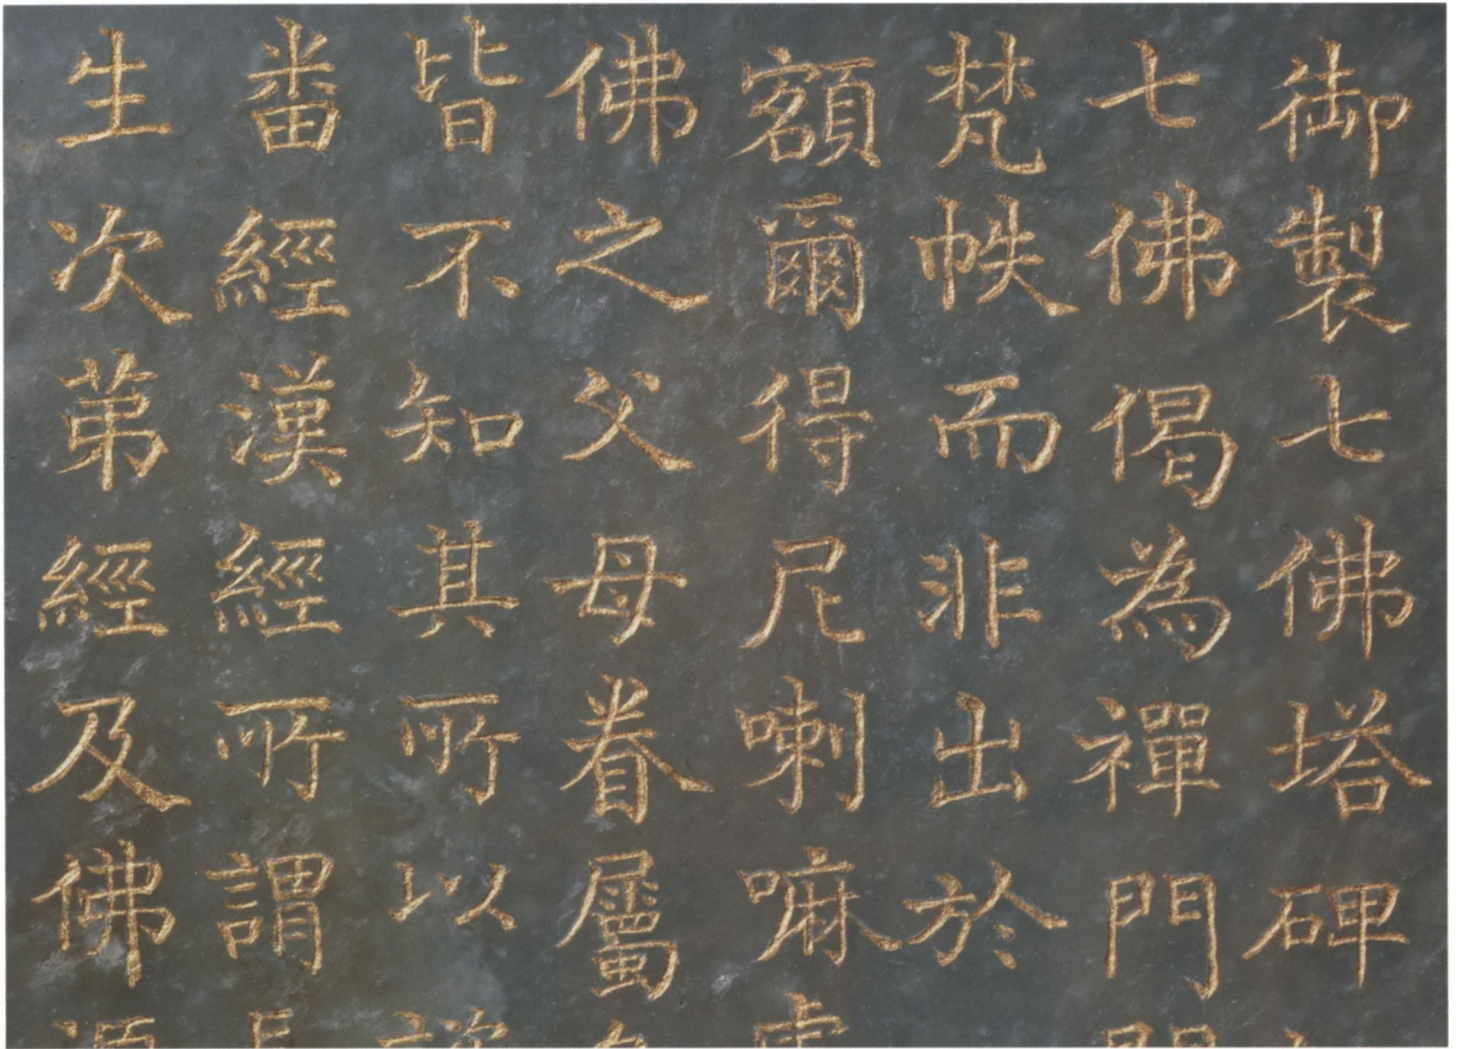 御製七佛塔碑
七佛偈為禪門
梵帙而非出於
額爾得尼喇嘛
佛之父母眷屬
皆不知其所以
番經漢經所謂
生次苐經及佛